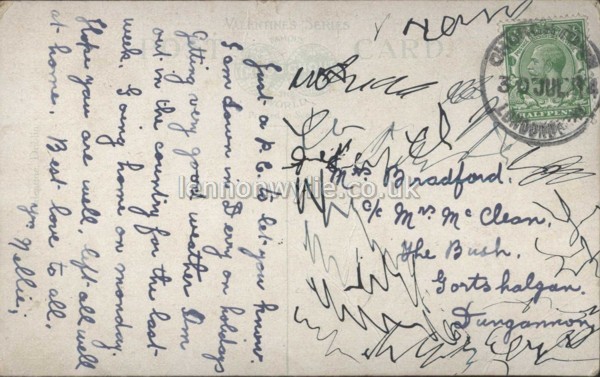 VALENTINES SERIES
POST CARD
Just a P.C. to let you know
I am down in Derry on holidays
Getting very good weather Im
out in the country for the last
week. Going home on monday.
Hope you are well, left all well
at home. Best love to all.
Yrs Nellie;
Mrs. Bradford.
c/c Mrs. McClean.
The Bush.
Gortshalgan.
Dungannon
30 JUL
LONDONDERRY
HALFPENNY
lennonwylie.co.uk